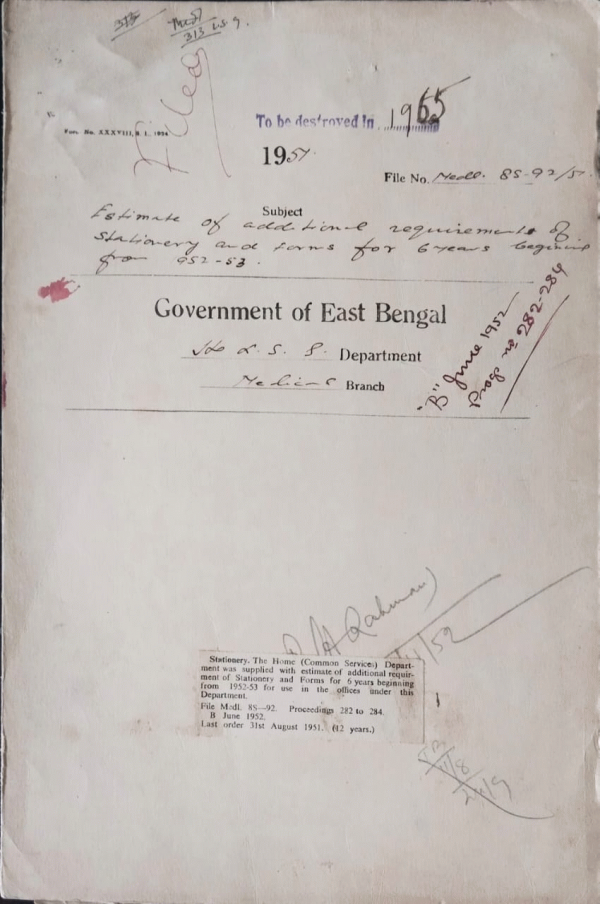 Filed
Form No. XXXVIII, B. I., 1934
To be destroyed in 1965
1951.
File No. Medl. 8S-92/51
Subject
Estimate of additional requirements of
Stationery and forms for 6 years begining
from 952-53.
Government of East Bengal
H & L. S. G. Department
Medical Branch
"B" June 1952
Progs no 282-284
Rahman)
/52
Stationery. The Home (Common Services) Depart-
ment was supplied with estimate of additional requir-
ment of Stationery and Forms for 6 years beginning
from 1952-53 for use in the offices under this
Department.
File Modl. 8S—92. Proceedings 282 to 284.
B June 1952.
Last order 31st August 1951. (12 years.)